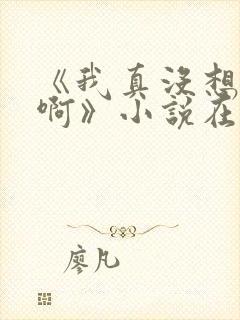 《我真没想
啊》小说在
廖凡